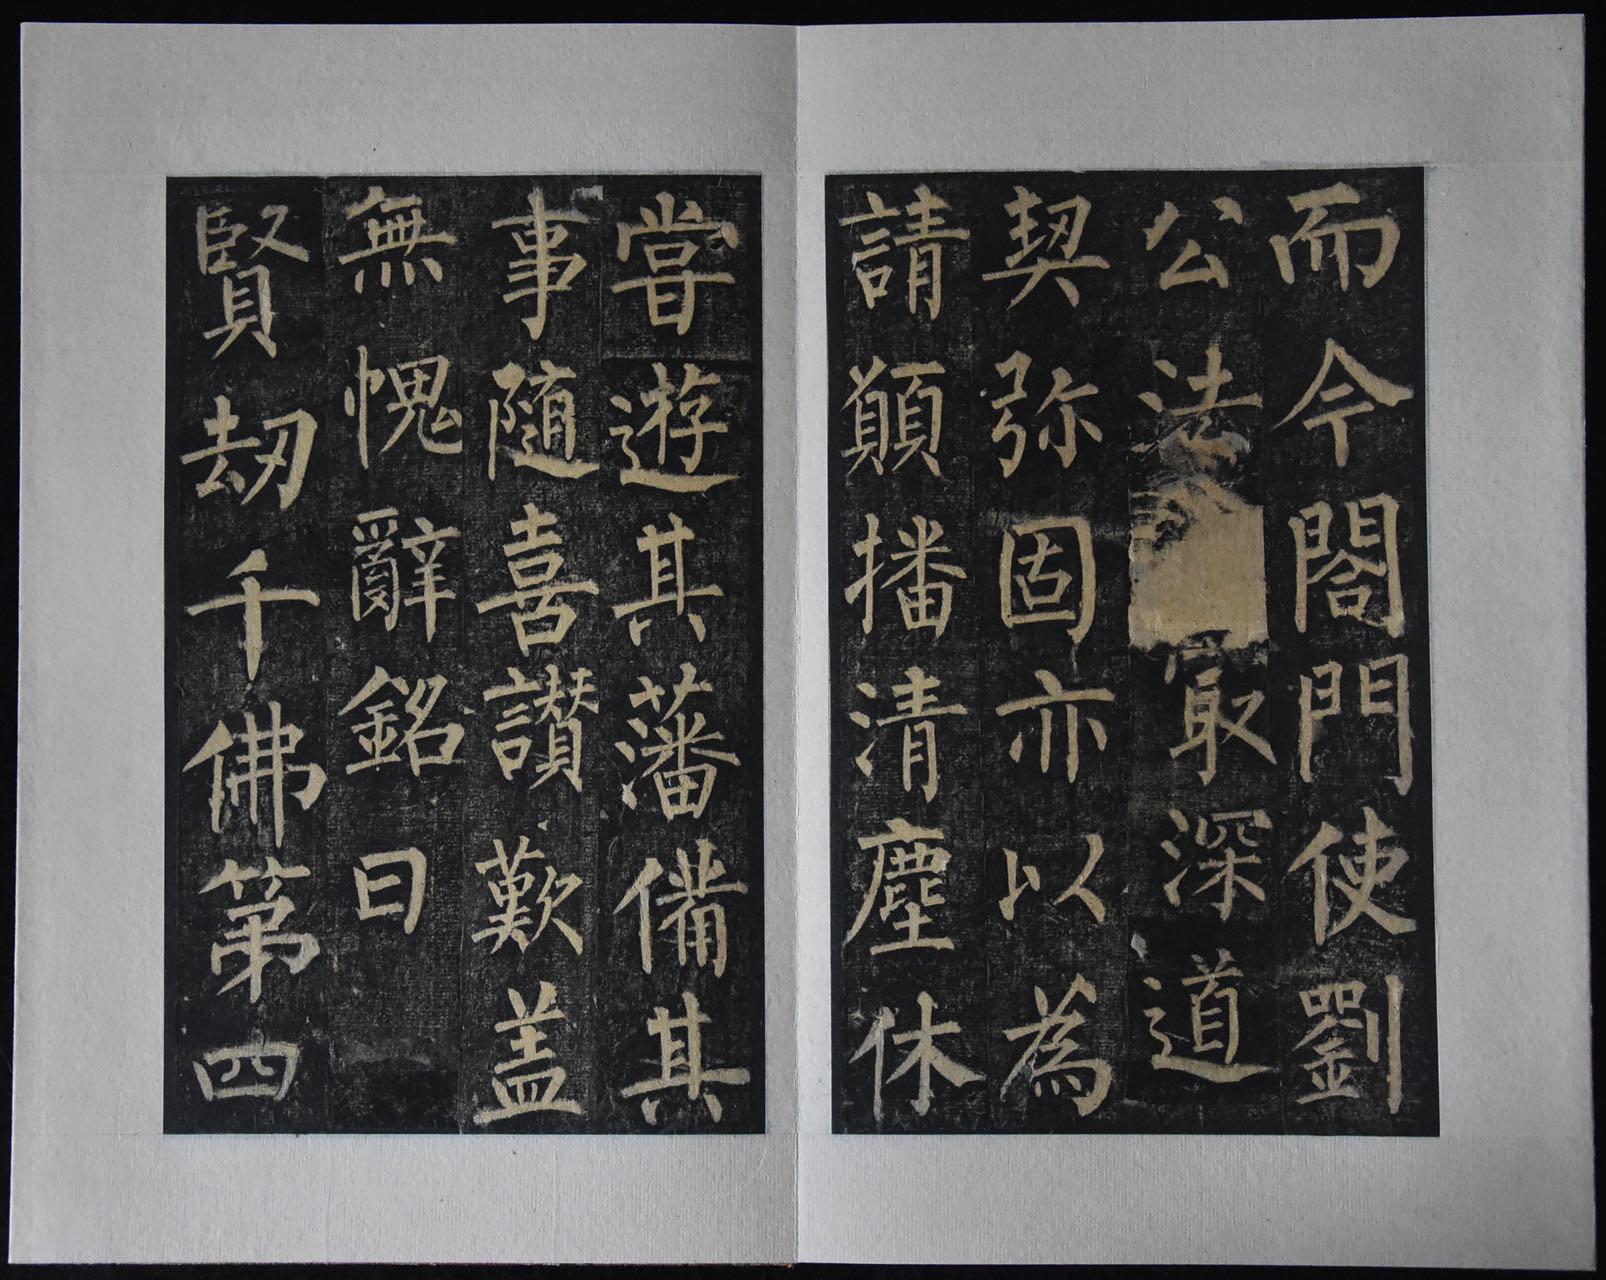 而今閤門使劉
公法冣深道
契弥固亦以為
請願播清塵休
甞遊其藩備其
事随喜讃歎盖
無愧辭銘曰
賢劫千佛第四